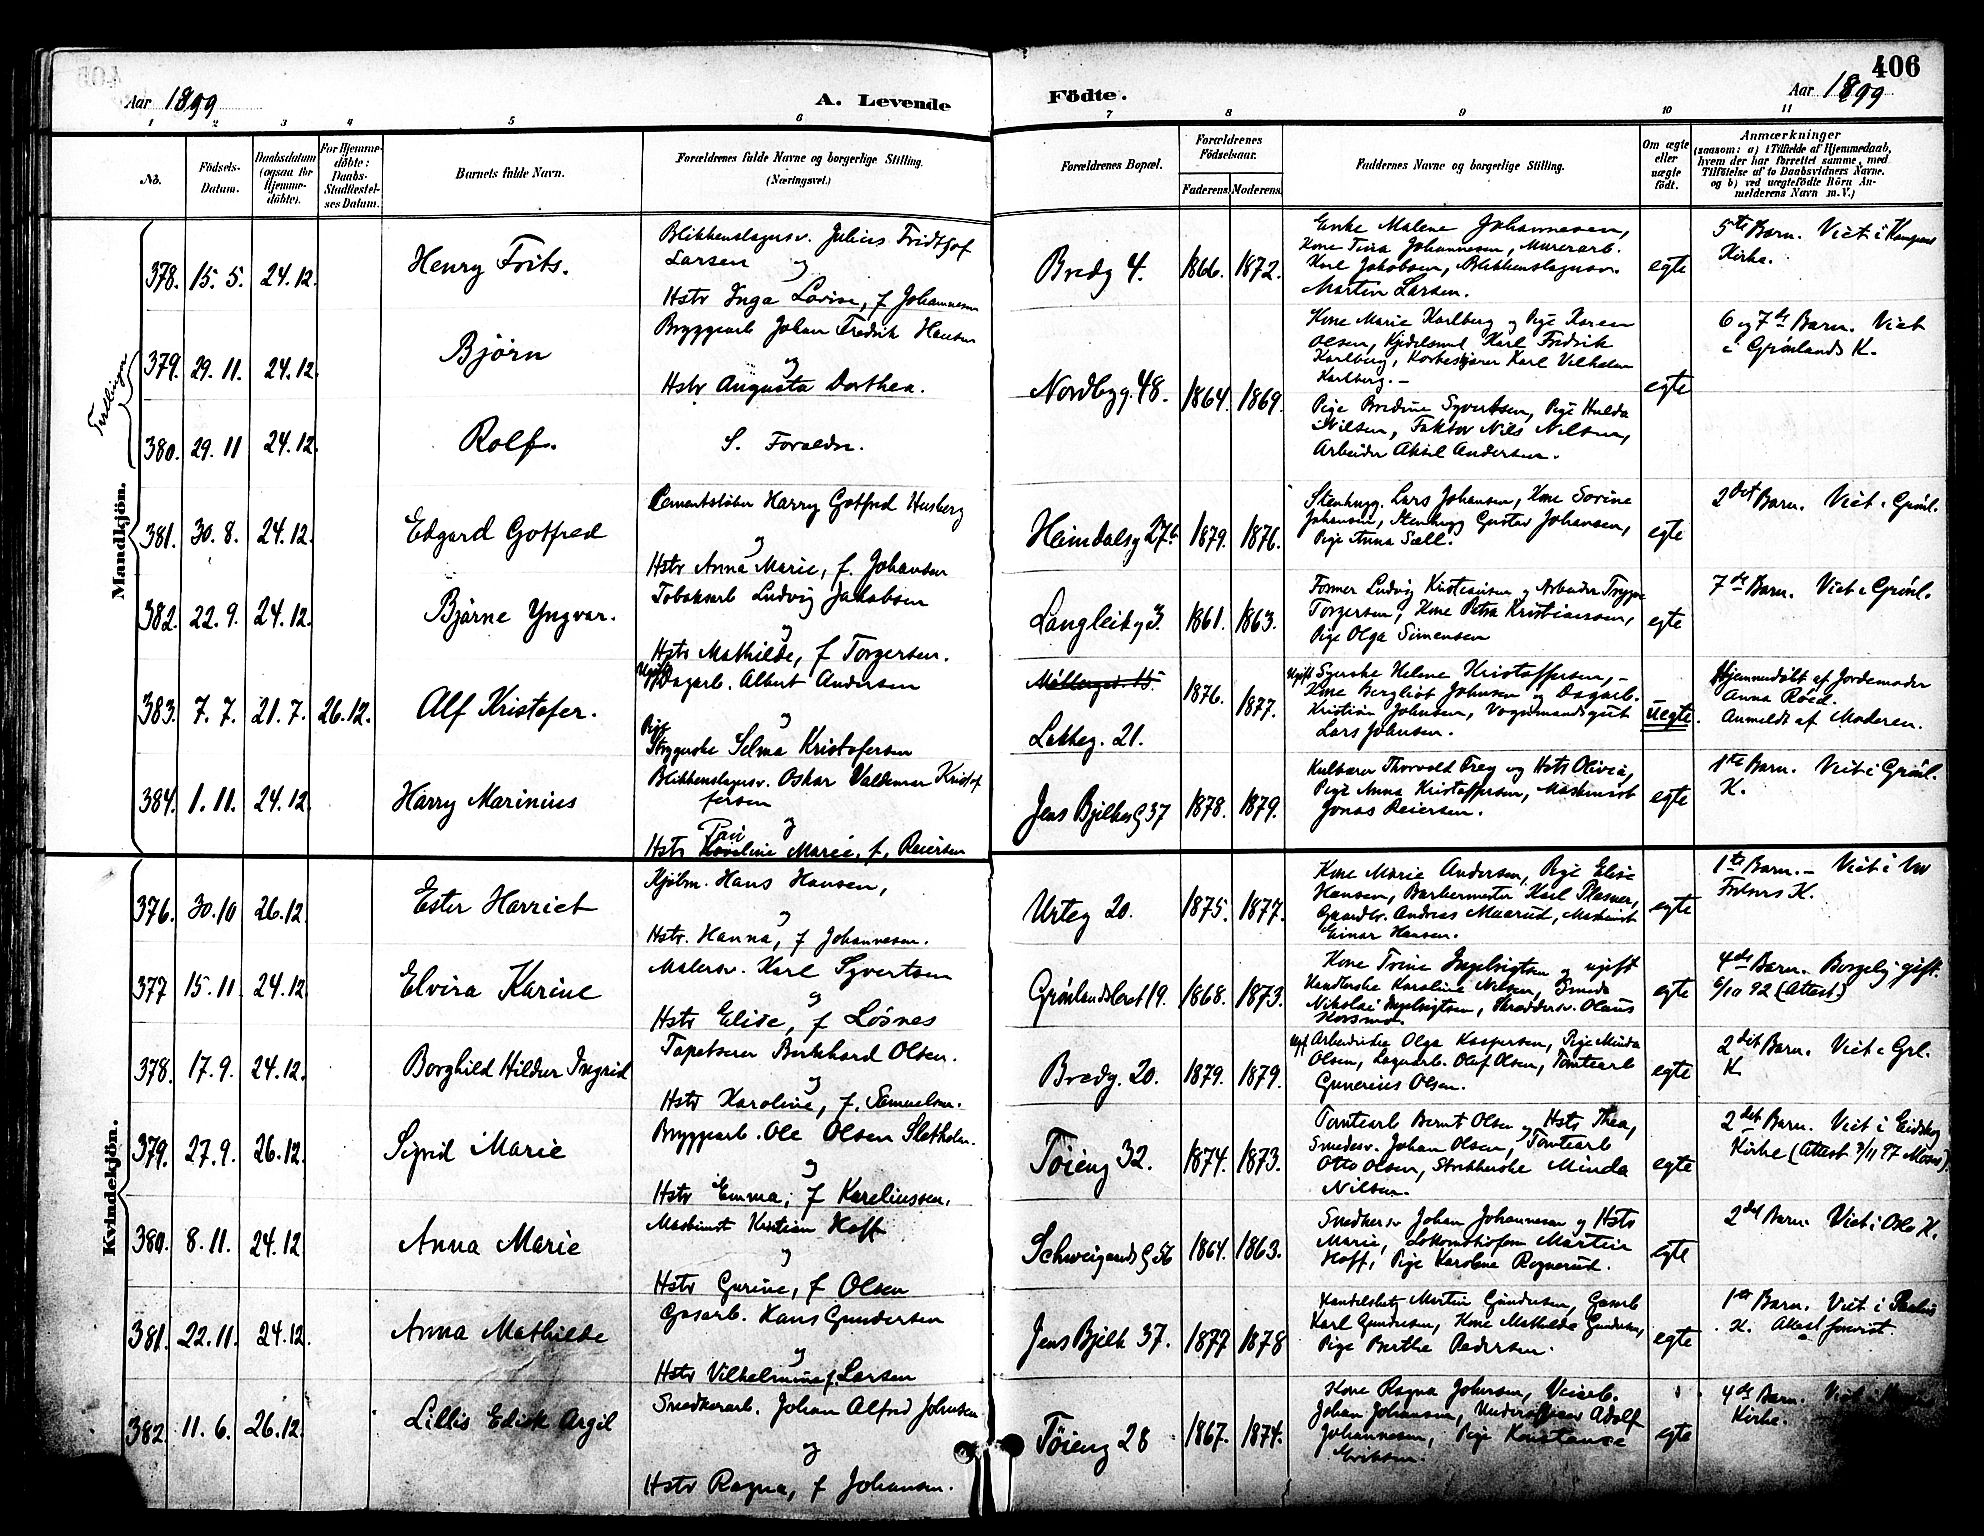 406
Aar 1899
A. Levende Födte.
Aar 1899
1 2 3 4 5 6 7 8 9 10 11
No.
Födsels-Datum.
Daabsdatum (ogsaa for Hjemme-döbte).
For Hjemme-döbte: Daabs-Stadfæstel-ses Datum.
Barnets fulde Navn.
Forældrenes fulde Navne og borgerlige Stilling.
(Næringsvei.)
Forældrenes Bopæl.
Forældrenes Födselsaar.
Faderens. Moderens.
Faddernes Navne og borgerlige Stilling.
Om ægte eller uægte födt.
Anmærkninger
(saasom: a) i Tilfælde af Hjemmedaab,
hvem der har forrettet samme, med
Tilföielse af to Daabsvidners Navne.
og b) ved uægtefödte Börn An-
melderens Navn m. V.)
Mandkjön.
378. 15. 5. 24. 12. Henry Frits.
Blikkenslagersv. Julius Fridtjof
Larsen og
Hstr Inga Lovise, f Johannesen
Bredg 4. 1866. 1872.
Enke Malene Johannesen,
Kone Tina Johannesen, Murerarb.
Karl Jakobsen, Blikkenslagersv.
Martin Larsen.
egte
5te Barn. Viet i Kampens
Kirke.
Tvillinger
379. 29. 11. 24. 12. Bjørn
Bryggearb Johan Fredrik Hansen
og
Hstr Augusta Dorthea.
Nordbyg. 48. 1864. 1869.
Kone Marie Karlberg og Pige Karen
Olsen, Kjedelsmed Karl Fredrik
Karlberg, Karl Vilhelm
Karlberg. –
egte
6 og 7de Barn. Viet
i Grønlands K.
380. 29. 11 24. 12. Rolf.
S. Foraldre.
Pige Bredine Syvertsen, Pige Hulda
Nilsen, Faktor Nils Nilsen,
Arbeider Aksel Andersen.
381. 30. 8. 24. 12. Edgard Gotfred
Cementstøber Harry Gotfred Husberg
og
Hstr Anna Marie, f. Johansen
Heimdalsg 27 1879. 1876.
Stenhugg. Lars Johansen, Kone Sorine
Johansen, Stenhugg Gustav Johansen,
Pige Anna Sæll.
egte
2det Barn. Viet i Grønl.
382. 22. 9. 24. 12. Bjarne Yngvar.
Tobaksarb Ludvig Jakobsen
og
Hstr Mathilde, f Torgersen.
Langleikg 3. 1861. 1863.
Former Ludvig Kristiansen og Arbeider Trygve
Torgersen, Kone Petra Kristiansen,
Pige Olga Simensen
egte
7de Barn. Viet i Grønl.
383. 7. 7. 21. 7. 26. 12. Alf Kristofer.
Ugift Dagarb. Albert Andersen
og
Pige Strygerske Selma Kristofersen
Møllergad. 15.
Lakkeg. 21.
1876. 1877.
Ugift Syerske Helene Kristoffersen, –
Kone Bergliot Johnsen og Dagarb.
Kristian Johnsen, Vognmandsgut
Lars Johnsen.
uegte.
Hjemmedøbt af Jordemoder
Anna Røed.
Anmeldt af Moderen.
384. 1. 11. 24. 12. Harry Marinius
Blikkenslagersv. Oskar Valdemar Kristof
fersen
og
Hstr Marie, f. Reiersen
Jens Bjelkes G 37 1878. 1879.
Kulbærer Thorvald Frey og Hstr Olivia,
Pige Anna Kristoffersen, Maskinist
Jonas Reiersen.
egte
1ste Barn. Viet i Grønl.
K.
Kvindekjön.
376. 30. 10 26. 12 Ester Harriet
Kjøbm. Hans Hansen,
og
Hstr. Hanna, f Johannesen.
Urteg 20. 1875. 1877.
Kone Marie Andersen, Pige Elise
Hansen, Barbermester Karl Plesner,
Gaardbr. Andreas Maarud, Maskinist
Einar Hansen.
egte
1ste Barn. – Viet i Vor
Frelsers K.
377 15. 11. 24. 12 Elvira Karine
Malersv. Karl Syvertsen
og
Hstr Elise, f Løsnes
Grønlandsleret 19. 1868. 1873.
Kone Trine Ingebrigtsen og ugift
Handlerske Karoline Nilsen, Smed
Nikolai Ingebrigtsen, Skræddersv. Olaus
Korsmo.
egte
4de Barn. Borgelig gift.
6/10 92 (Attest)
378. 17. 9. 24. 12. Borghild Hildur Ingrid
Tapetserer Bernhard Olsen.
og
Hstr Karoline, f. Samuelsen.
Bredg. 20. 1879. 1879.
Ugift Arbeiderske Olga Kaspersen, Pige Minda
Olsen, Lagerarb. Oluf Olsen, Tomtearb
Gunerius Olsen.
egte
2det Barn. Viet i Grl.
K
379. 27. 9. 26. 12. Sigrid Marie
Bryggearb. Ole Olsen Sletholm.
og
Hstr Emma, f Kareliussen.
Tøieng 32. 1874. 1873.
Tomtearb Bernt Olsen og Hstr Thea,
Smedesv. Johan Olsen, Tomtearb
Otto Olsen, Strikkerske Minda
Nilsen.
egte
2det Barn. Viet i Eidsberg
Kirke (Attest 3/11 97 Moss).
380. 8. 11. 24. 12 Anna Marie
Maskinist Kristian Hoff
og
Hstr Gurine, f Olsen
Schweigaards G 56 1864. 1863.
Snedkersv Johan Johannesen og Hstr
Marie, Lokomotivfører Martin
Hoff, Pige Karoline Rognerud.
egte
2det Barn. Viet i Oslo K.
381. 22. 11. 24. 12. Anna Mathilde
Gasarb. Hans Gundersen
og
Hstr Vilhelmine f. Larsen
Jens Bjelk 37. 1877 1878
Handelsbetj Martin Gundersen, Gasarb
Karl Gundersen, Kone Mathilde Gundersen,
Pige Berthe Pedersen.
egte
1ste Barn. Viet i Paulus
K. Attest forevist.
382. 11. 6. 26. 12. Lillis Edisk Argil
Snedkerarb. Johan Alfred Johnsen.
og
Hstr Ragna, f Johansen.
Tøieng 28 1867. 1874.
Kone Ragna Johnsen, Veiarb.
Johan Johansen, Underofficer Adolf
Johannesen, Pige Konstance
Eriksen.
egte
4de Barn. Viet i
Kirke.